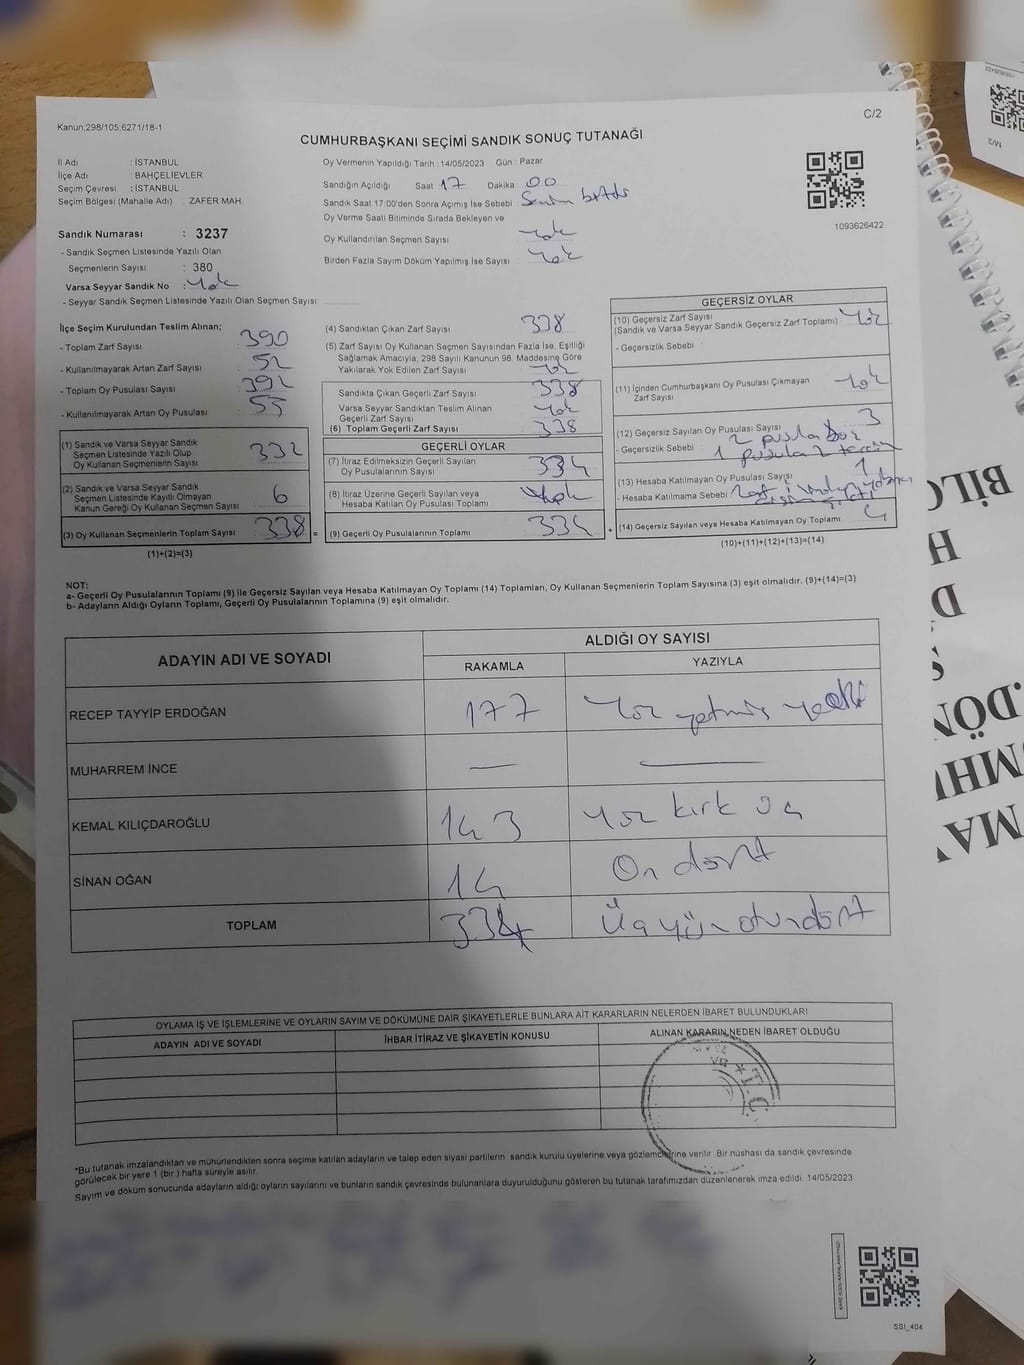 Kanun;298/105;6271/18-1
C/2
CUMHURBAŞKANI SEÇİMİ SANDIK SONUÇ TUTANAĞI
İl Adı : İSTANBUL
İlçe Adı : BAHÇELİEVLER
Seçim Çevresi : İSTANBUL
Seçim Bölgesi (Mahalle Adı) : ZAFER MAH.
Sandık Numarası : 3237
- Sandık Seçmen Listesinde Yazılı Olan
Seçmenlerin Sayısı : 380
Varsa Seyyar Sandık No : Yok
- Seyyar Sandık Seçmen Listesinde Yazılı Olan Seçmen Sayısı:
Oy Vermenin Yapıldığı Tarih : 14/05/2023 Gün : Pazar
Sandığın Açıldığı Saat 17 Dakika 00
Sandık Saat 17:00'den Sonra Açmış İse Sebebi
Oy Verme Saati Bitiminde Sırada Bekleyen ve
Oy Kullandırılan Seçmen Sayısı Yok
Birden Fazla Sayım Döküm Yapılmış İse Sayısı Yok
1093626422
İlçe Seçim Kurulundan Teslim Alınan;
- Toplam Zarf Sayısı : 390
- Kullanılmayarak Artan Zarf Sayısı : 52
- Toplam Oy Pusulası Sayısı : 392
- Kullanılmayarak Artan Oy Pusulası : 55
(1) Sandık ve Varsa Seyyar Sandık
Seçmen Listesinde Yazılı Olup
Oy Kullanan Seçmenlerin Sayısı : 332
(2) Sandık ve Varsa Seyyar Sandık
Seçmen Listesinde Kayıtlı Olmayan
Kanun Gereği Oy Kullanan Seçmen Sayısı 6
(3) Oy Kullanan Seçmenlerin Toplam Sayısı 338
(1)+(2)=(3)
(4) Sandıktan Çıkan Zarf Sayısı 338
(5) Zarf Sayısı Oy Kullanan Seçmen Sayısından Fazla İse, Eşitliği
Sağlamak Amacıyla; 298 Sayılı Kanunun 98. Maddesine Göre
Yakılarak Yok Edilen Zarf Sayısı Yok
Sandıkta Çıkan Geçerli Zarf Sayısı 338
Varsa Seyyar Sandıktan Teslim Alınan
Geçerli Zarf Sayısı Yok
(6) Toplam Geçerli Zarf Sayısı 338
GEÇERLİ OYLAR
(7) İtiraz Edilmeksizin Geçerli Sayılan
Oy Pusulalarının Sayısı 334
(8) İtiraz Üzerine Geçerli Sayılan veya
Hesaba Katılan Oy Pusulası Toplamı Yok
= (9) Geçerli Oy Pusulalarının Toplamı 334 +
GEÇERSİZ OYLAR
(10) Geçersiz Zarf Sayısı
(Sandık ve Varsa Seyyar Sandık Geçersiz Zarf Toplamı) Yok
- Geçersizlik Sebebi :
(11) İçinden Cumhurbaşkanı Oy Pusulası Çıkmayan
Zarf Sayısı Yok
(12) Geçersiz Sayılan Oy Pusulası Sayısı 3
- Geçersizlik Sebebi : 2 pusula boş
1 pusula 2 tercih
(13) Hesaba Katılmayan Oy Pusulası Sayısı 1
- Hesaba Katılmama Sebebi :
(14) Geçersiz Sayılan veya Hesaba Katılmayan Oy Toplamı 4
(10)+(11)+(12)+(13)=(14)
NOT:
a- Geçerli Oy Pusulalarının Toplamı (9) ile Geçersiz Sayılan veya Hesaba Katılmayan Oy Toplamı (14) Toplamları, Oy Kullanan Seçmenlerin Toplam Sayısına (3) eşit olmalıdır. (9)+(14)=(3)
b- Adayların Aldığı Oyların Toplamı, Geçerli Oy Pusulalarının Toplamına (9) eşit olmalıdır.
ADAYIN ADI VE SOYADI
ALDIĞI OY SAYISI
RAKAMLA YAZIYLA
RECEP TAYYİP ERDOĞAN 177 Yüz yetmiş yedi
MUHARREM İNCE — —
KEMAL KILIÇDAROĞLU 143 Yüz kırk üç
SİNAN OĞAN 14 On dört
TOPLAM 334 Üçyüz otuzdört
OYLAMA İŞ VE İŞLEMLERİNE VE OYLARIN SAYIM VE DÖKÜMÜNE DAİR ŞİKAYETLERLE BUNLARA AİT KARARLARIN NELERDEN İBARET BULUNDUKLARI
ADAYIN ADI VE SOYADI İHBAR İTİRAZ VE ŞİKAYETİN KONUSU ALINAN KARARIN NEDEN İBARET OLDUĞU
T.C.
*Bu tutanak imzalandıktan ve mühürlendikten sonra seçime katılan adayların ve talep eden siyasi partilerin sandık kurulu üyelerine veya gözlemcilerine verilir. Bir nüshası da sandık çevresinde
görülecek bir yere 1 (bir) hafta süreyle asılır.
Sayım ve döküm sonucunda adayların aldığı oyların sayılarını ve bunların sandık çevresinde bulunanlara duyurulduğunu gösteren bu tutanak tarafımızdan düzenlenerek imza edildi. 14/05/2023
SSI_404
M/2